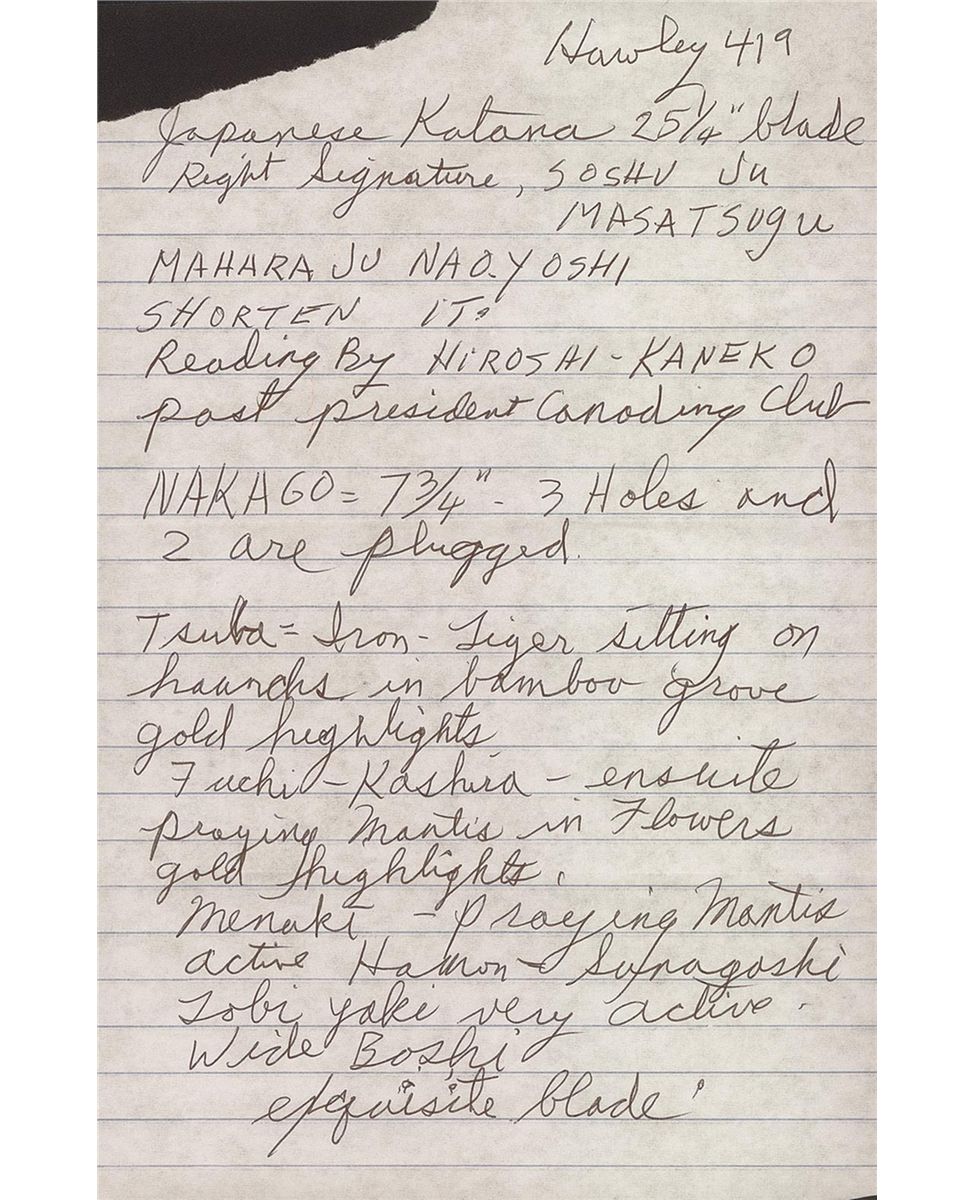 Hawley 419
Japanese Katana 25 1/4" blade
Right Signature, SOSHU JU
MASATSUgu
MAHARA JU NAOYOSHI
SHORTEN IT.
Reading By HIROSHI - KANEKO
past president Canoding Club
NAKAGO = 7 3/4" - 3 Holes and
2 are plugged.
Tsuba = Iron - Tiger sitting on
haunchs in bamboo grove
gold highlights
Fuchi - Kashira - ensuite
praying Mantis in Flowers
gold highlights.
Menuki - praying Mantis
active Hamon - Sunagashi
Tobi yaki very active.
Wide Boshi
exquisite blade